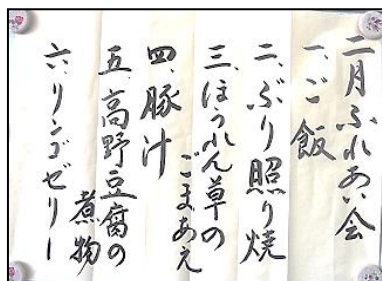 二月ふれあい会
一、ご飯
二、ぶり照り焼
三、ほうれん草の
ごまあえ
四、豚汁
五、高野豆腐の
煮物
六、リンゴゼリー